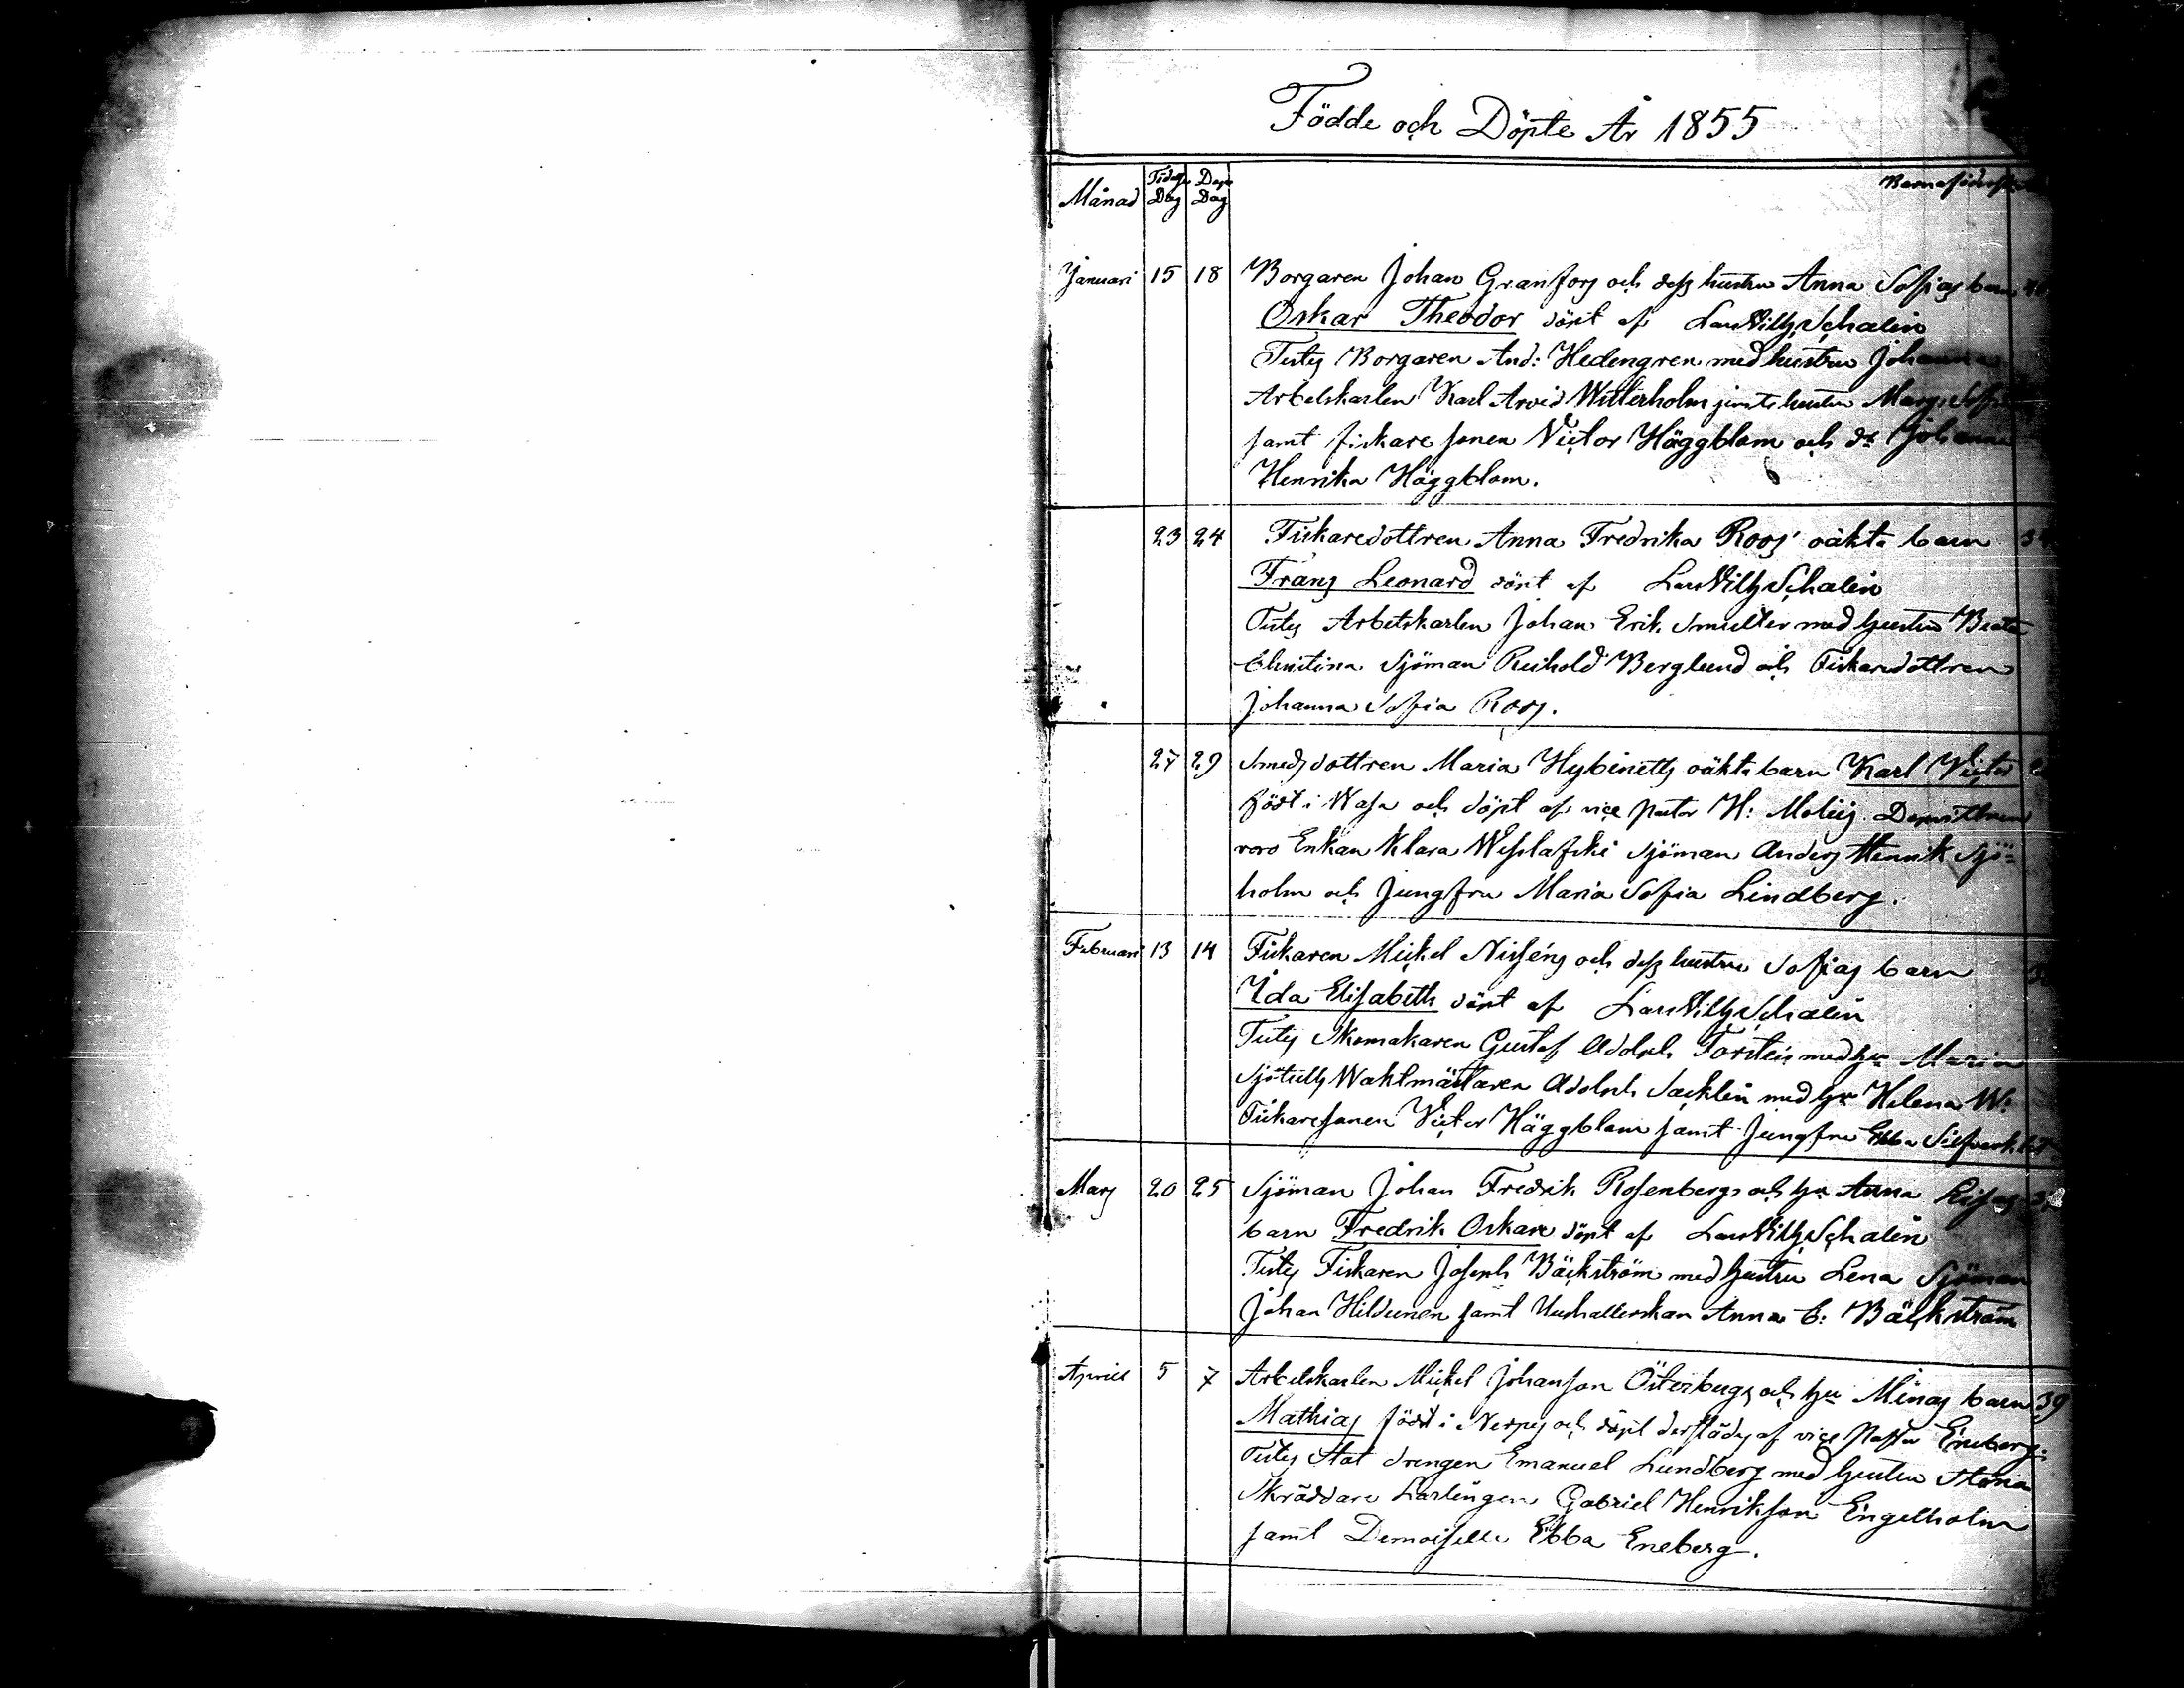 Födde och Döpte År 1855
Månad Födelse Dag Dope Dag
Januari 15 18 Borgaren Johan Granfors och dess hustru Anna Sofias barn
Oskar Theodor döpt af Lars Wilh Schalin
Testes Borgaren And: Hedengren med hustru Johanna
Arbetskarlen Karl Arvid Witterholm jemte hustru
samt fiskare sonen Victor Häggblom och dr Johanna
Henrika Häggblom.
23 24 Fiskaredottren Anna Fredrika Roos' oäkta barn
Frans Leonard döpt af Lars Wilh Schalin
Testes Arbetskarlen Johan Erik Smulter med hustru Beata
Christina Sjöman Reihold Berglund och Fiskaredottren
Johanna Sofia Roos.
27 29 Smedsdottren Maria Hybinetts oäkta barn Karl Victor
född i Wasa och döpt af vice Pastor H: Moliis
voro Enkan Klara Wesslafski Sjöman Anders Henrik Sjö=
holm och Jungfru Maria Sofia Lindberg.
Februari 13 14 Fiskaren Mickel Nisséns och dess hustru Sofias barn
Ida Elisabeth döpt af Lars Wilh Schalin
Testes Skomakaren Gustaf Adolph Forstén med hu Maria
Sjötulls Waktmästaren Adolph Sacklin med hu Helena W:
Fiskaresonen Victor Häggblom samt Jungfru Ebba
Mars 20 25 Sjöman Johan Fredrik Rosenbergs och hu Anna
barn Fredrik Oskar döpt af Lars Wilh Schalin
Testes Fiskaren Joseph Bäckström med hustru Lena Sjöman
Johan Hildeunen samt Hushållerskan Anna C: Bäckström
Aprill 5 7 Arbetskarlen Mickel Johansson Österbergs och hu Minas barn 39
Mathias född i Nerpes och döpt derstädes af vice Pastor Eneberg.
Testes Stat drengen Emanuel Lundberg med hustru Maria
Skräddare Lärlingen Gabriel Henriksson Engelholm
samt Demoiselle Ebba Eneberg.